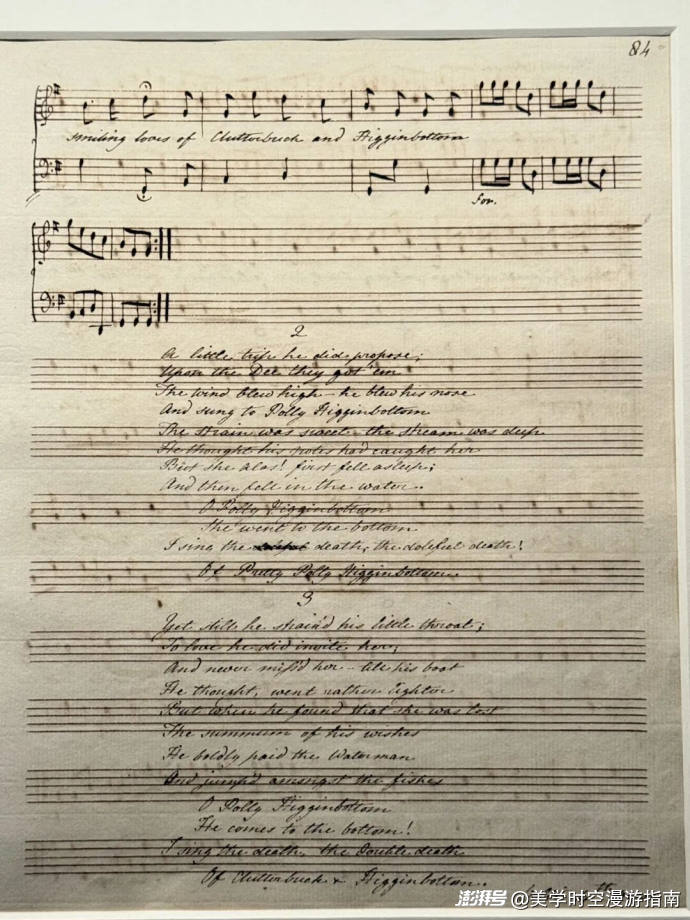 84
smiling loves of Clutterbuck and Higginbottom
For.
2
A little trip he did propose;
Upon the Dee they got 'em
The wind blew high – he blew his nose
And sung to Polly Higginbottom
The strain was sweet – the stream was deep
He thought his notes had caught her
But she alas! first fell asleep;
And then fell in the water..
O Polly Higginbottom
She went to the bottom
I sing the death, the doleful death!
Of Pretty Polly Higginbottom.
3
Yet still he strain'd his little throat;
To love he did invite her;
And never miss'd her – till his boat
He thought, went rather lighter
But when he found that she was lost
The summum of his wishes
He boldly paid the Waterman
And jump'd amongst the fishes
O Polly Higginbottom
He comes to the bottom!
I sing the death, the Double death
Of Clutterbuck & Higginbottom..
澎湃号 @美学时空漫游指南